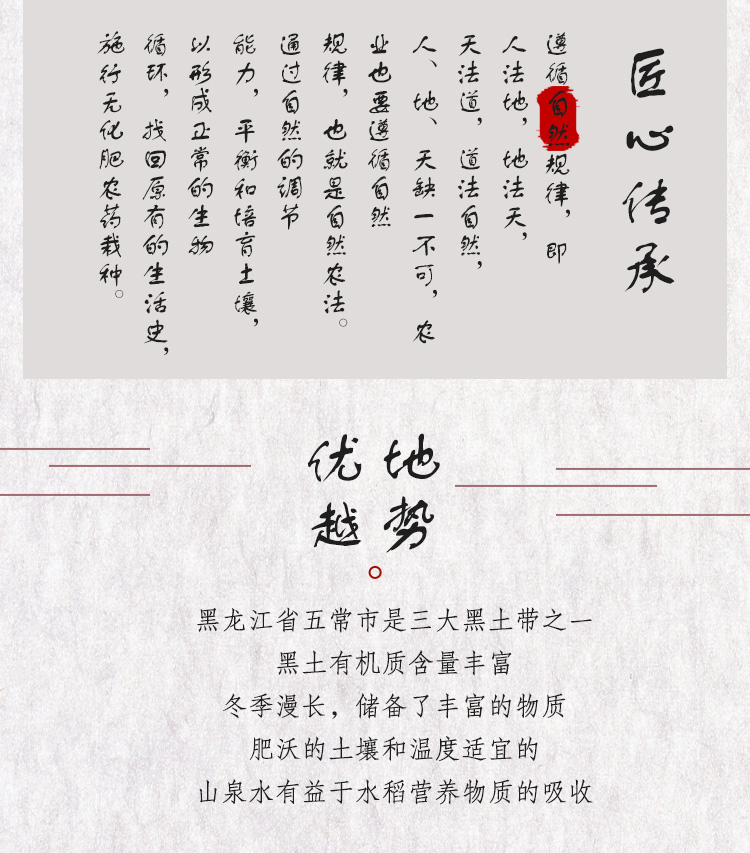 匠心传承
遵循自然规律，即
人法地，地法天，
天法道，道法自然，
人、地、天缺一不可，农
业也要遵循自然
规律，也就是自然农法。
通过自然的调节
能力，平衡和培育土壤，
以形成正常的生物
循环，找回原有的生活史，
施行无化肥农药栽种。
地势
优越
黑龙江省五常市是三大黑土带之一
黑土有机质含量丰富
冬季漫长，储备了丰富的物质
肥沃的土壤和温度适宜的
山泉水有益于水稻营养物质的吸收